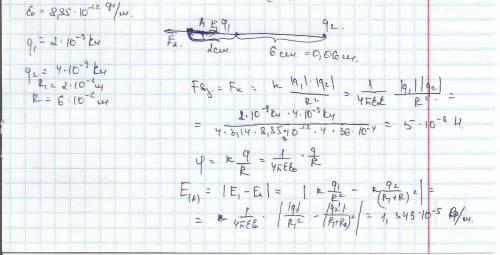 ε₀ = 8,85·10⁻¹² ф/м.
q₁ = 2·10⁻⁹ Кл
q₂ = 4·10⁻⁹ Кл
R₁ = 2·10⁻² м
R = 6·10⁻² м
A E₁ q₁ q₂.
F₂. 2см 6 см. = 0,06 м.
= Fк = к |q₁|·|q₂| / R² = 1 / 4πεε₀ |q₁| |q₂| / R² =
= 2·10⁻⁹·4·10⁻⁹ / 4·3,14·8,85·10⁻¹²·4·36·10⁻⁴ = 5·10⁻⁶ Н.
φ = к q / R = 1 / 4πεε₀ · q / R
E(A) = |E₁ - E₂| = | к q₁ / R₁² - к q₂ / (R₁+R)² | =
= 1 / 4πεε₀ · | |q₁| / R₁² - |q₂| / (R₁+R₂)² | = 1,349·10⁻⁵ В/м.